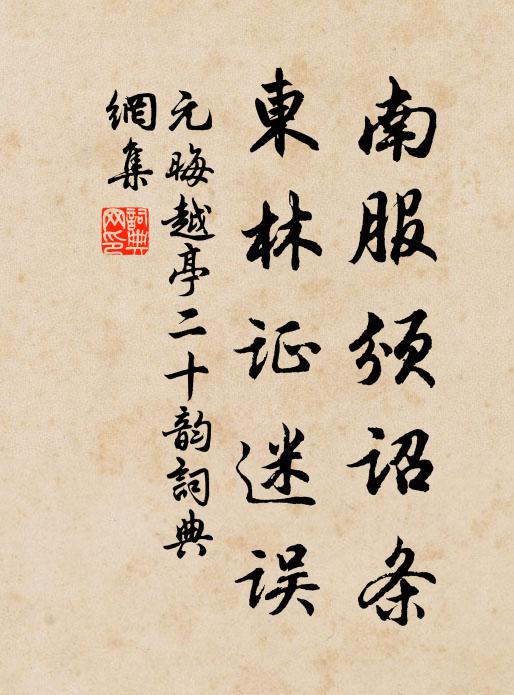 南服颁诏条
東林证迷误
元晦越亭二十韵詞典
網集
詞典網印